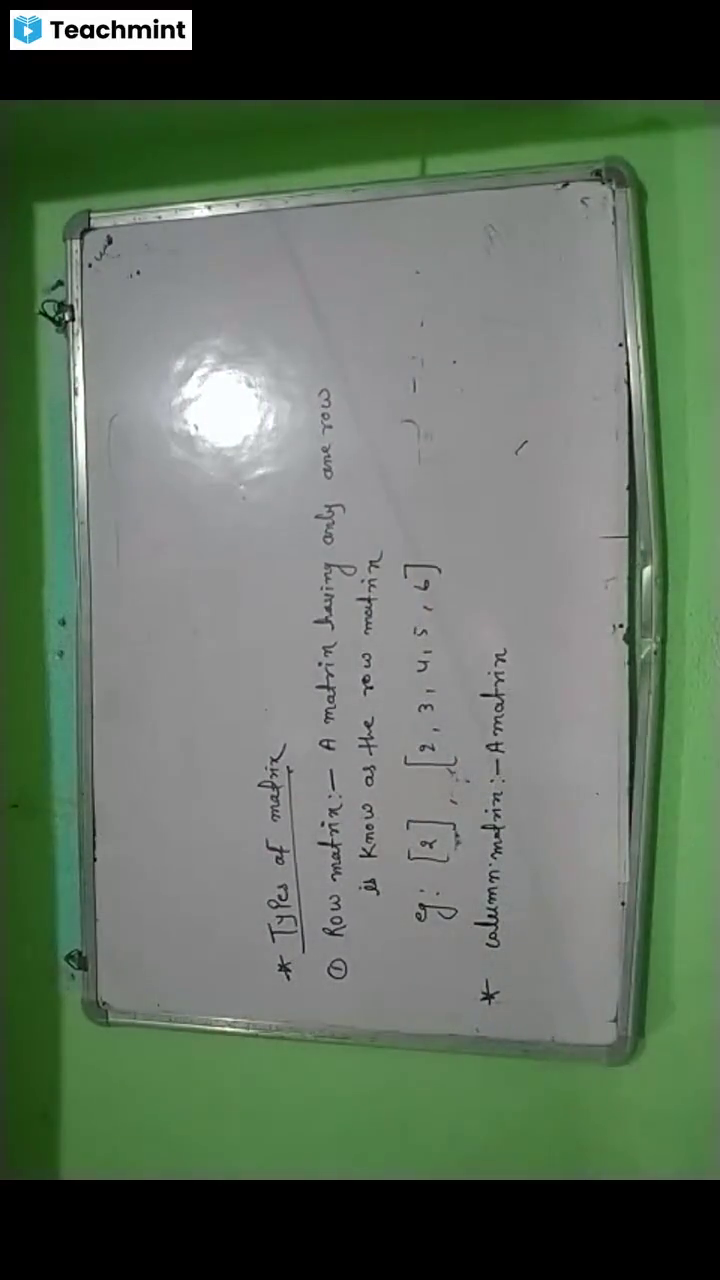 Teachmint
* Types of matrix
① Row matrix:- A matrix having only one row
is know as the row matrix
eg: [2], [2, 3, 4, 5, 6]
* column matrix:- A matrix